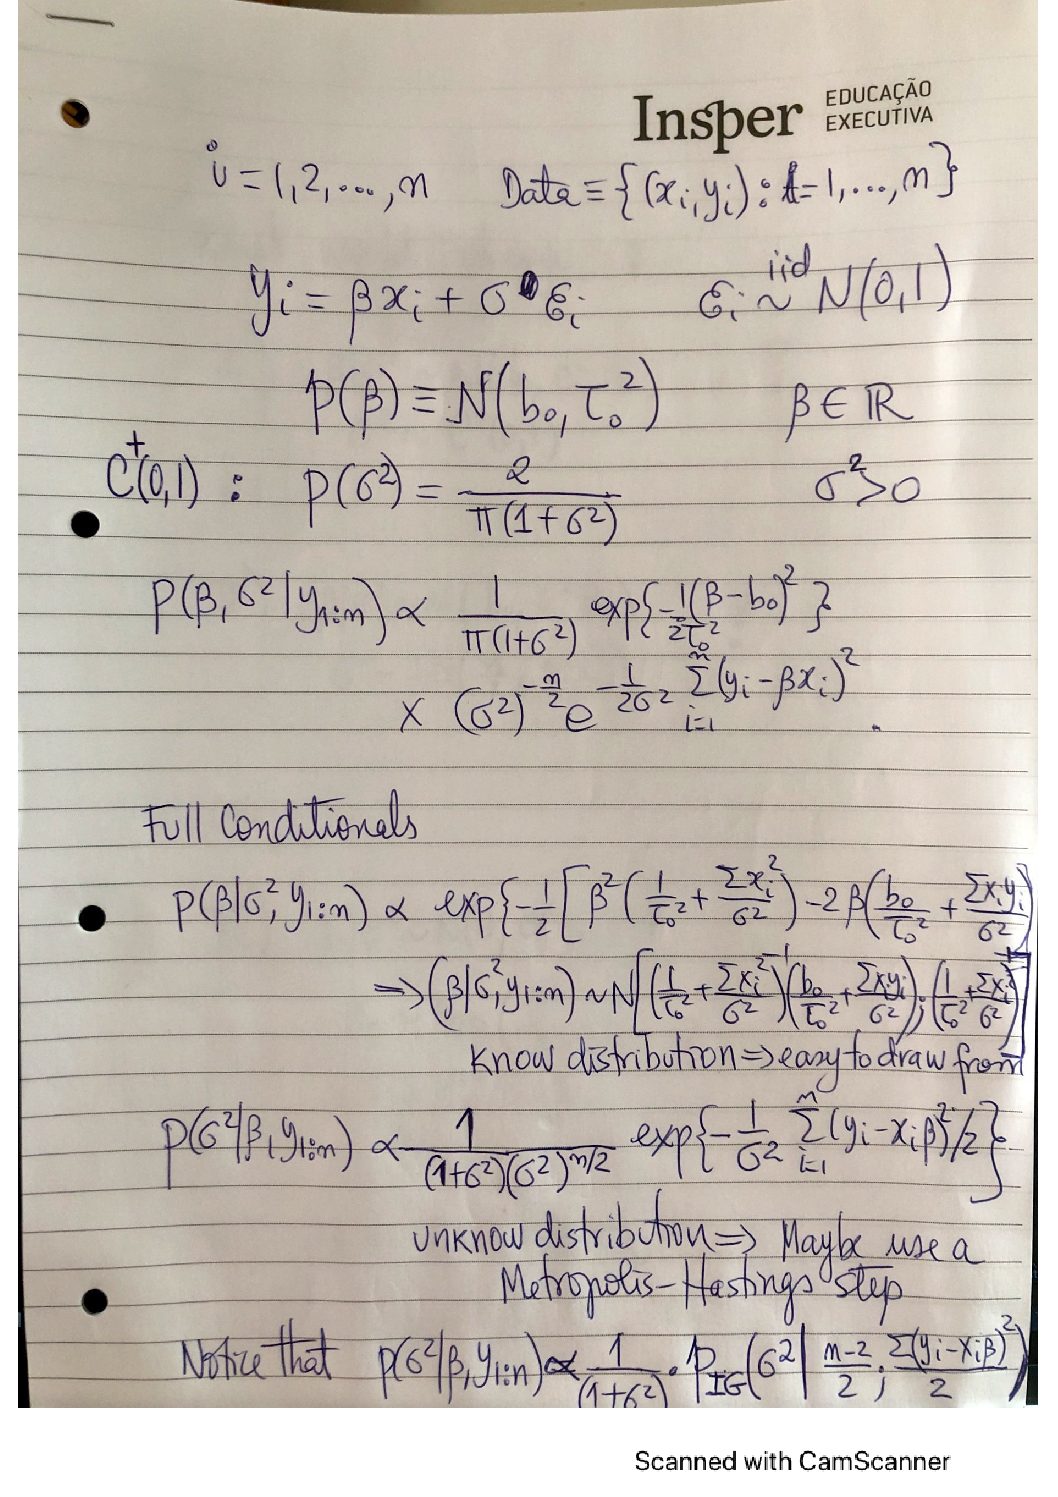 Insper EDUCAÇÃO EXECUTIVA
i = 1, 2, ..., n Data ≡ {(xᵢ, yᵢ) : t = 1, ..., n}
yᵢ = βxᵢ + σ εᵢ εᵢ ~ⁱⁱᵈ N(0,1)
p(β) ≡ N(b₀, τ₀²) β ∈ ℝ
C⁺(0,1) : p(σ²) = 2 / π(1+σ²) σ² > 0
p(β, σ² | y₁:ₙ) ∝ 1 / π(1+σ²) exp{-1/(2τ₀²) (β-b₀)²}
× (σ²)^(-n/2) e^(-1/(2σ²) Σᵢ₌₁ⁿ (yᵢ - βxᵢ)²) .
Full Conditionals
p(β|σ², y₁:ₙ) ∝ exp{-1/2 [β² (1/τ₀² + Σxᵢ²/σ²) - 2β(b₀/τ₀² + Σxᵢyᵢ/σ²)
⇒ (β|σ², y₁:ₙ) ~ N[(1/τ₀² + Σxᵢ²/σ²)⁻¹ (b₀/τ₀² + Σxᵢyᵢ/σ²); (1/τ₀² + Σxᵢ²/σ²)⁻¹]
know distribution ⇒ easy to draw from
p(σ²|β, y₁:ₙ) ∝ 1 / (1+σ²)(σ²)^(n/2) exp{-1/σ² Σᵢ₌₁ⁿ (yᵢ - xᵢβ)²/2}
unknow distribution ⇒ Maybe use a
Metropolis-Hastings step
Notice that p(σ²|β, y₁:ₙ) ∝ 1/(1+σ²) · p_IG(σ² | (n-2)/2 ; Σ(yᵢ - xᵢβ)²/2)
Scanned with CamScanner